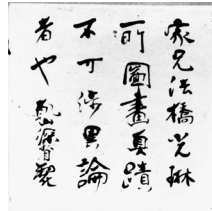 家兄法橋光琳
所圖畫真蹟
不可渉異論
者也乾山深省製